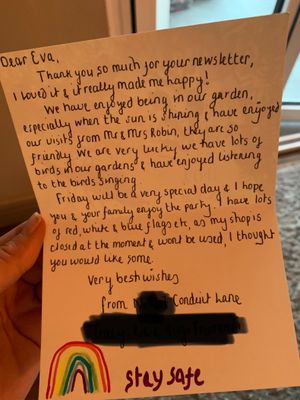 Dear Eva,
Thank you so much for your newsletter,
I loved it & it really made me happy!
We have enjoyed being in our garden,
especially when the sun is shining & have enjoyed
our visits from Mr & Mrs Robin, they are so
friendly. We are very lucky we have lots of
birds in our gardens & have enjoyed listening
to the birds singing
Friday will be a very special day & I hope
you & your family enjoy the party. I have lots
of red, white & blue flags etc, as my shop is
closed at the moment & wont be used, I thought
you would like some.
Very best wishes
from Conduit Lane
stay safe